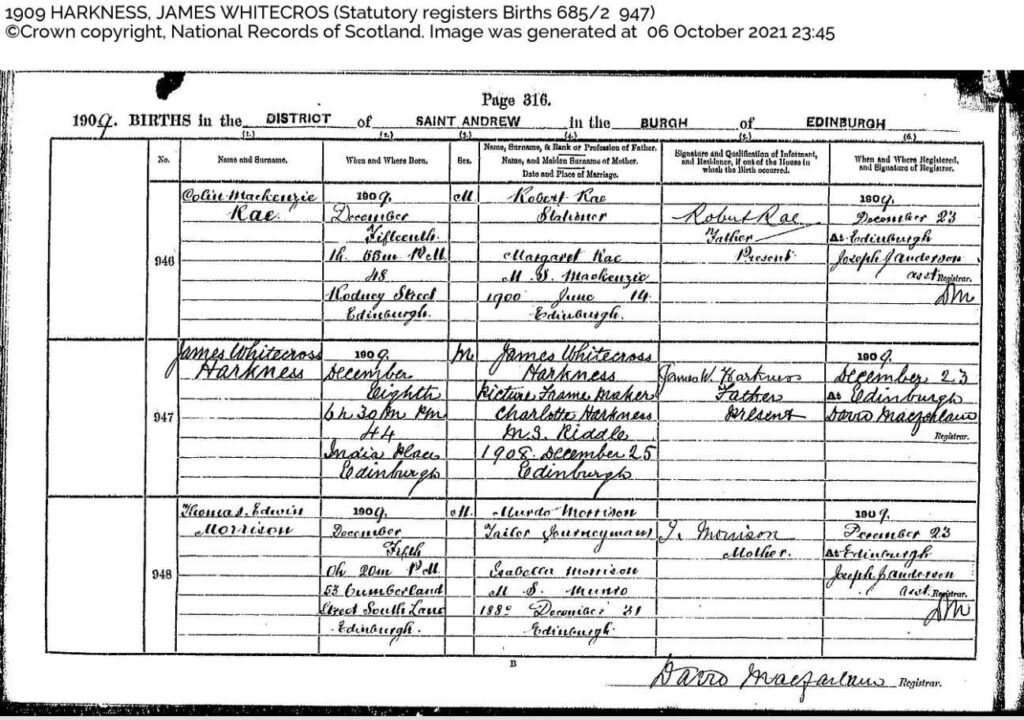 1909 HARKNESS, JAMES WHITECROS (Statutory registers Births 685/2 947)
©Crown copyright, National Records of Scotland. Image was generated at 06 October 2021 23:45
Page 316.
1909. BIRTHS in the DISTRICT of SAINT ANDREW in the BURGH of EDINBURGH
(1.) (2.) (3.) (4.) (5.) (6.)
No.
Name and Surname.
When and Where Born.
Sex.
Name, Surname, & Rank or Profession of Father.
Name, and Maiden Surname of Mother.
Date and Place of Marriage.
Signature and Qualification of Informant,
and Residence, if out of the House in
which the Birth occurred.
When and Where Registered,
and Signature of Registrar.
946
Colin Mackenzie
Rae
1909.
December
Fifteenth
1h. 55m P.M.
48
Rodney Street
Edinburgh.
M
Robert Rae
Stationer
Margaret Rae
M. S. Mackenzie
1900 June 14
Edinburgh.
Robert Rae
Father
Present
1909.
December 23
At Edinburgh
Joseph J Anderson
asst Registrar.
DM
947
James Whitecross
Harkness
1909.
December
Eighth
6h 30m PM
44
India Place
Edinburgh
M
James Whitecross
Harkness
Picture Frame Maker
Charlotte Harkness
M.S. Riddle
1908. December 25
Edinburgh
James W. Harkness
Father
Present
1909.
December 23
At Edinburgh
David Macfarlane
Registrar.
948
Thomas Edwin
Morrison
1909.
December
Fifth
0h 20m P.M.
53 Cumberland
Street South Lane
Edinburgh.
M.
Murdo Morrison
Tailor Journeyman
Isabella Morrison
M. S. Munro
December 31
Edinburgh.
I. Morrison
Mother.
1909.
December 23
At Edinburgh
Joseph J Anderson
asst. Registrar.
DM
B
David Macfarlane Registrar.